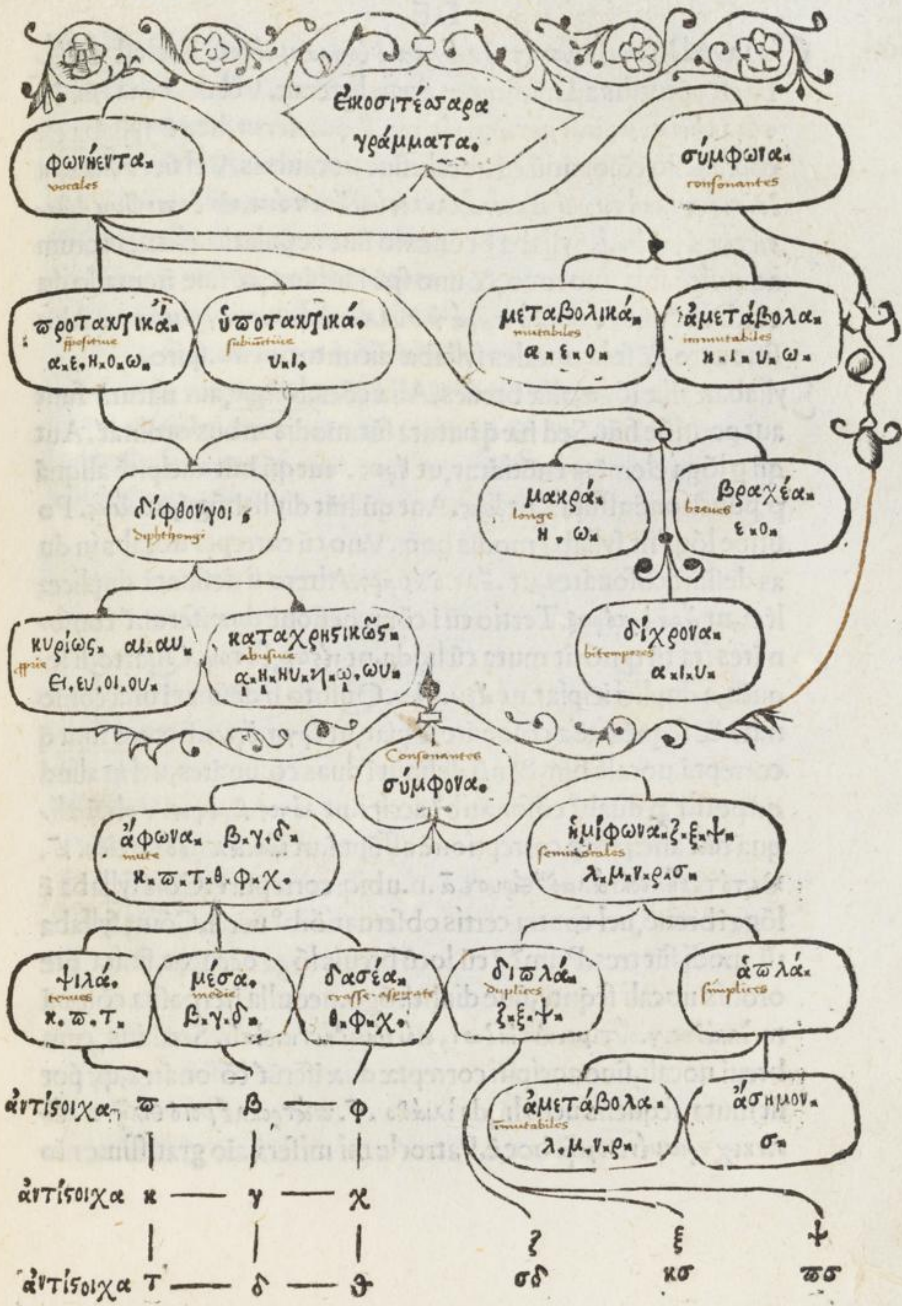 Εἰκοσιτέσσαρα
γράμματα.
φωνήεντα.
vocales
σύμφωνα.
consonantes
προτακτικά.
α. ε. η. ο. ω.
ὑποτακτικά.
υ. ι.
μεταβολικά.
mutabiles
α. ε. ο.
ἀμετάβολα.
immutabiles
η. ι. υ. ω.
δίφθογγοι.
Diphthongi
μακρά.
longe
η. ω.
βραχέα.
breues
ε. ο.
κυρίως. αι. αυ.
ει. ευ. οι. ου.
καταχρηστικῶς.
abusiue
ᾳ. ῃ. ηυ. υι. ῳ. ωυ.
δίχρονα.
bitempores
α. ι. υ.
Consonantes
σύμφονα.
ἄφωνα. β. γ. δ.
mute
κ. π. τ. θ. φ. χ.
ἡμίφωνα. ζ. ξ. ψ.
semiuocales
λ. μ. ν. ρ. σ.
ψιλά.
tenues
κ. π. τ.
μέσα.
medie
β. γ. δ.
δασέα.
θ. φ. χ.
διπλά.
duplices
ζ. ξ. ψ.
ἁπλά.
simplices
ἀμετάβολα.
immutabiles
λ. μ. ν. ρ.
ἄσημον.
σ.
ἀντίστοιχα. π — β — φ
ἀντίστοιχα κ — γ — χ
ἀντίστοιχα τ — δ — θ
ζ ξ ψ
σδ κσ πσ